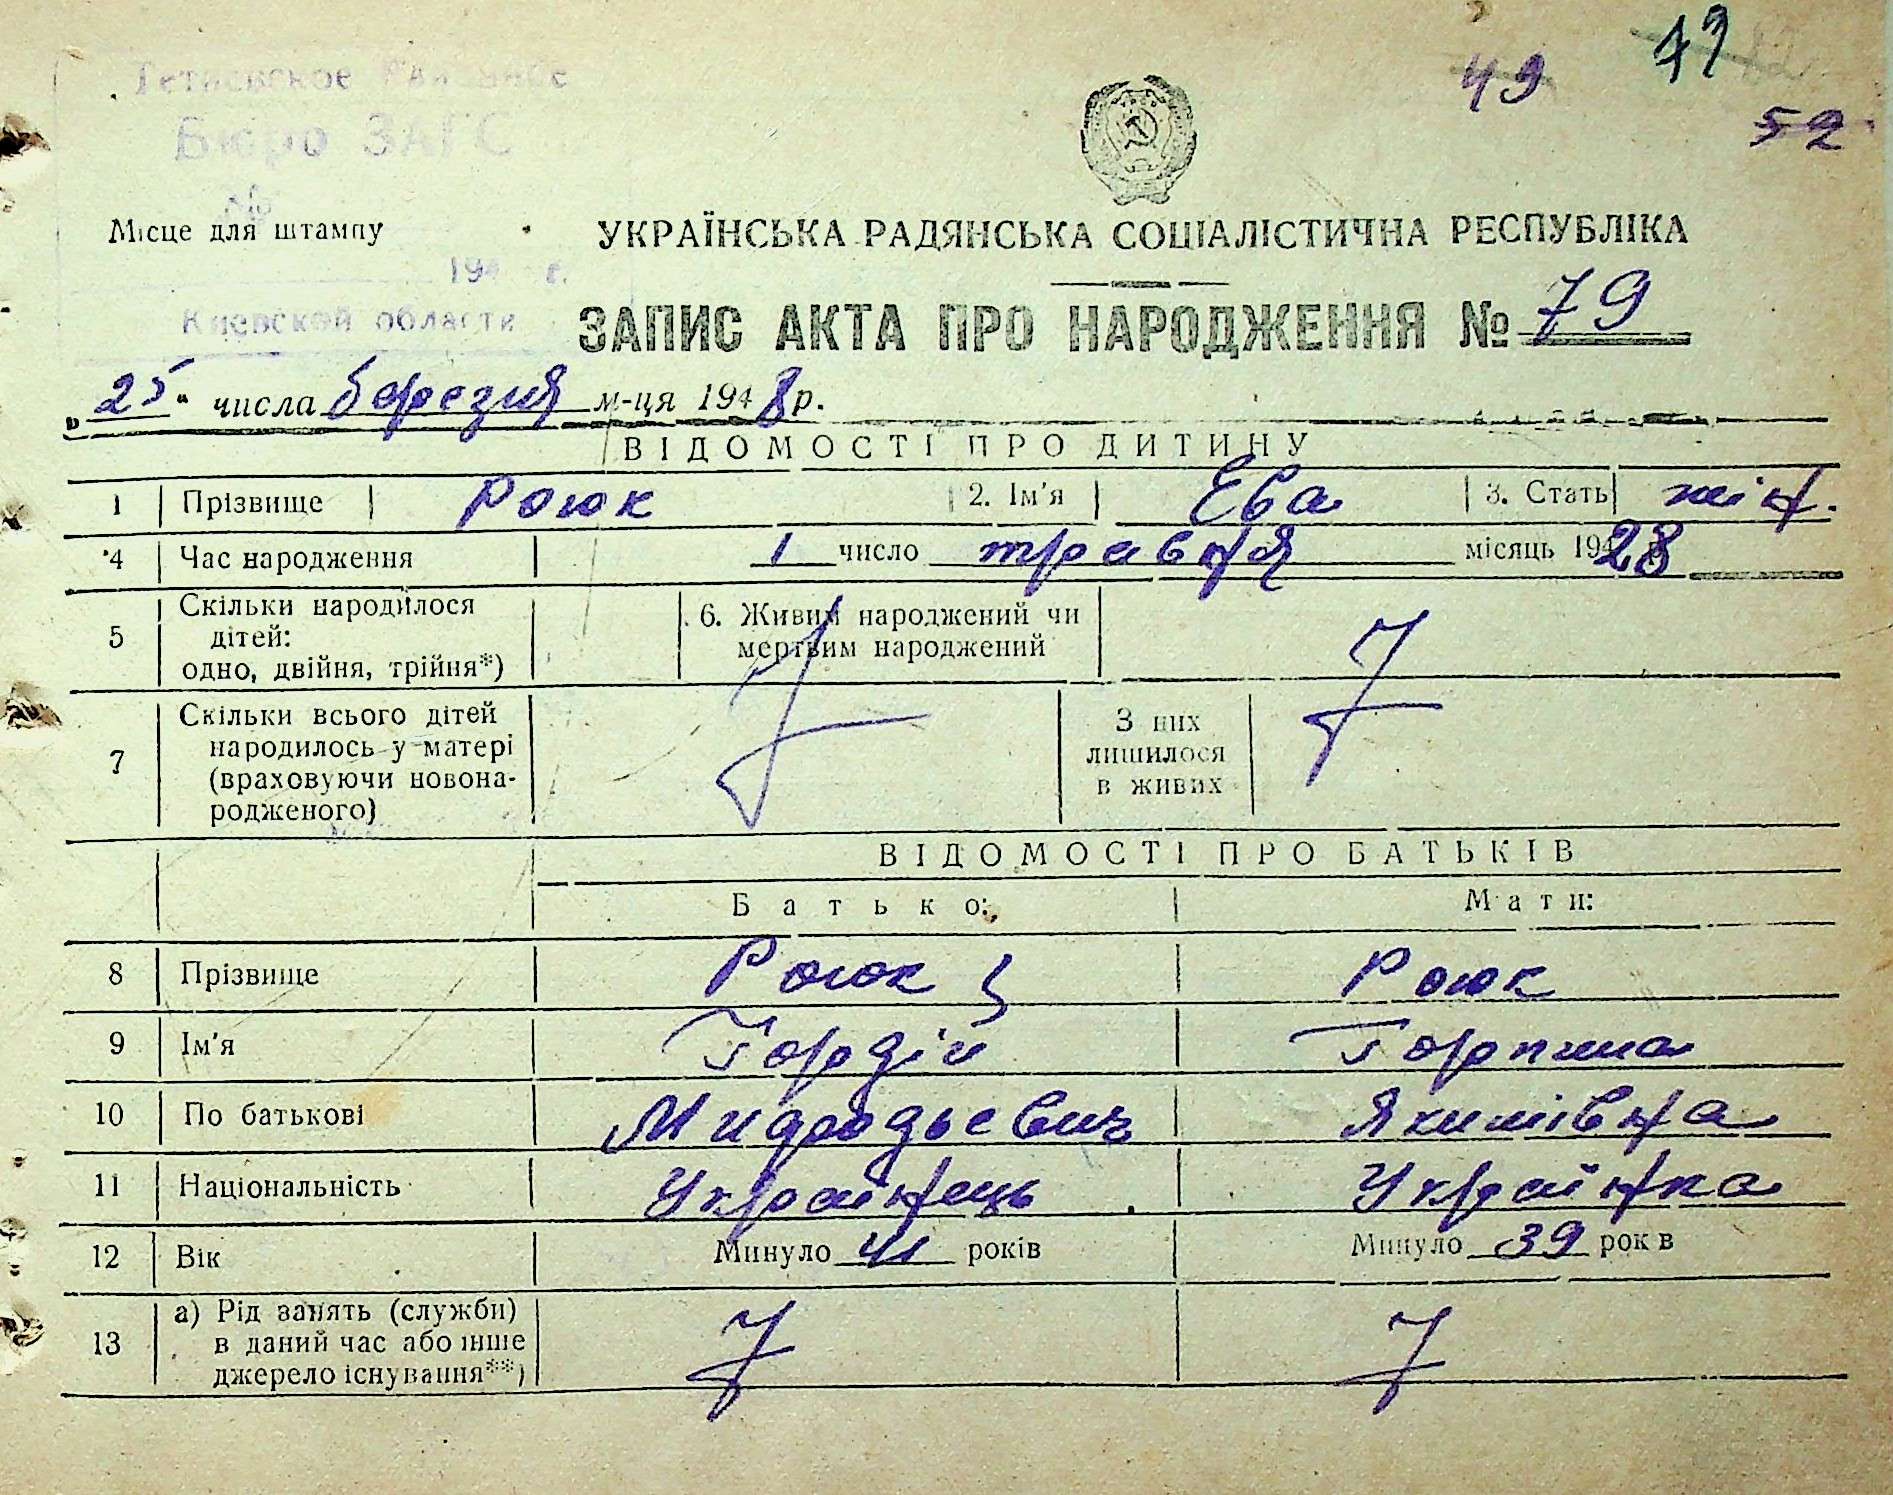 49 49
52
Бюро ЗАГС
Місце для штампу
194 г.
Киевской области
УКРАЇНСЬКА РАДЯНСЬКА СОЦІАЛІСТИЧНА РЕСПУБЛІКА
ЗАПИС АКТА ПРО НАРОДЖЕННЯ № 79
„25“ числа березня м-ця 1948 р.
ВІДОМОСТІ ПРО ДИТИНУ
1 Прізвище Роюк 2. Ім'я Ева 3. Стать жін.
4 Час народження 1 число травня місяць 1928
5 Скільки народилося дітей: одно, двійня, трійня*) 6. Живим народжений чи мертвим народжений
7 Скільки всього дітей народилось у матері (враховуючи новонародженого) З них лишилося в живих
ВІДОМОСТІ ПРО БАТЬКІВ
Батько: Мати:
8 Прізвище Роюк Роюк
9 Ім'я Гордій Горпина
10 По батькові Якимівна
11 Національність Українець Українка
12 Вік Минуло 41 років Минуло 39 рок в
13 а) Рід занять (служби) в даний час або інше джерело існування**)